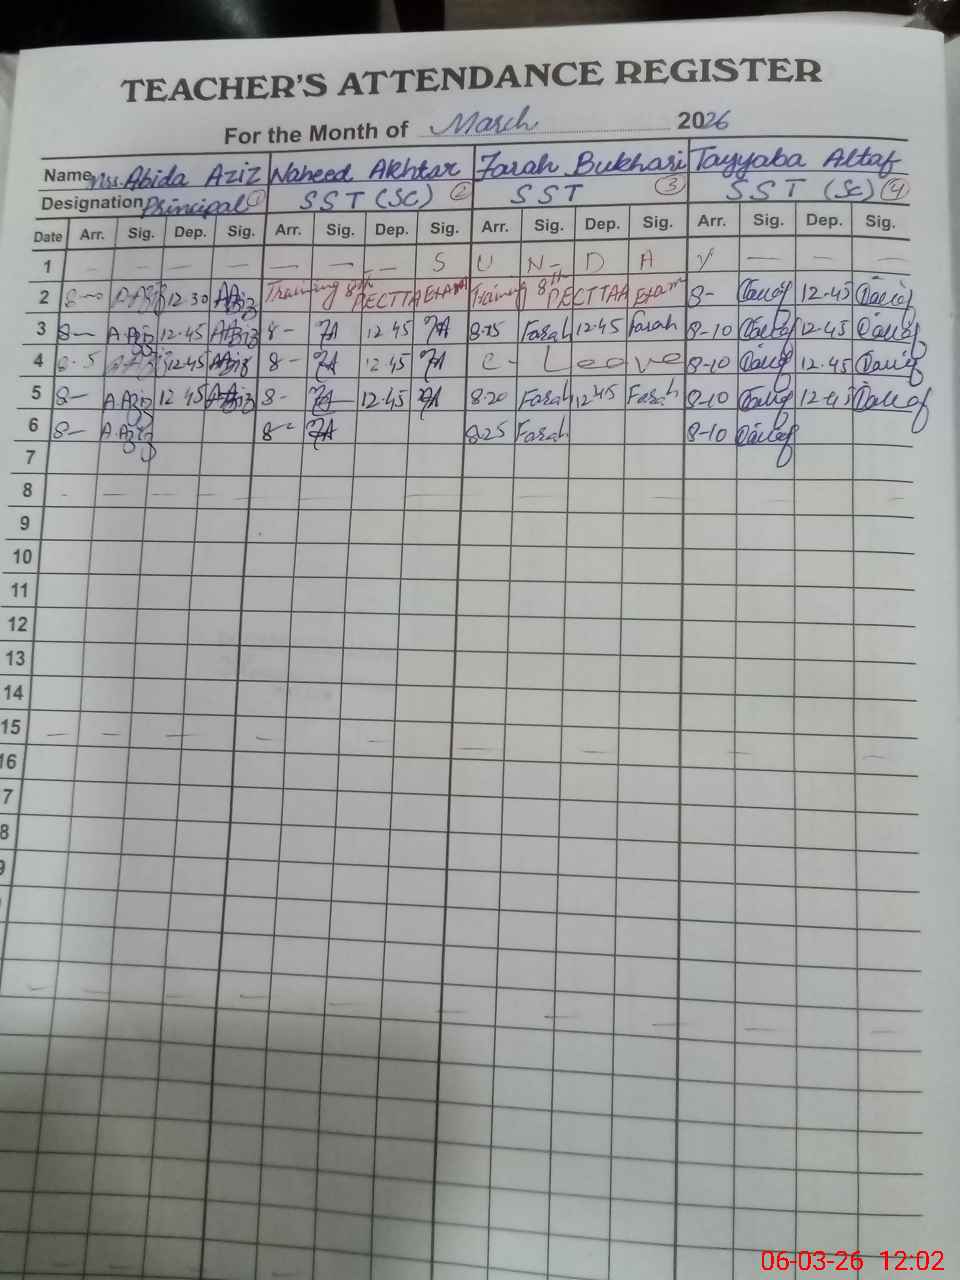 TEACHER'S ATTENDANCE REGISTER
For the Month of March 2026
Name Mrs. Abida Aziz Naheed Akhtar Farah Bukhari Tayyaba Altaf
Designation Principal 1 SST (SC) 2 SST 3 SST (SC) 4
Date Arr. Sig. Dep. Sig. Arr. Sig. Dep. Sig. Arr. Sig. Dep. Sig. Arr. Sig. Dep. Sig.
1 — — — — — — — S U N- D A Y — — —
2 8-00 A.Aziz 12 30 A.Aziz Training 8th PECTTA Exam Training 8th PECTTAA Exam 8- 12.45
3 8- A.Aziz 12.45 A.Aziz 8- 12 45 8-15 Farah 12.45 Farah 8-10 12.45
4 8.5 A.Aziz 12.45 A.Aziz 8- 12.45 C- Leave 8-10 12.45
5 8- A.Aziz 12 45 A.Aziz 8- 12.45 8.20 Farah 12.45 Farah 8-10 12.45
6 8- A.Aziz 8- 8.25 Farah 8-10
7
8
9
10
11
12
13
14
15
16
7
8
9
06-03-26 12:02